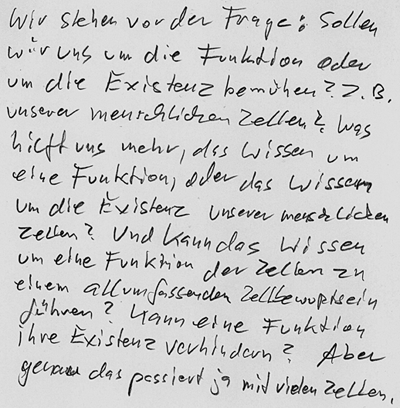 Wir stehen vor der Frage: Sollen
wir uns um die Funktion oder
um die Existenz bemühen? Z.B.
unserer menschlichen Zellen? Was
hilft uns mehr, das Wissen um
eine Funktion, oder das Wissen
um die Existenz unserer menschlichen
Zellen? Und kann das Wissen
um eine Funktion der Zellen zu
einem allumfassenden Zellbewußtsein
führen? Kann eine Funktion
ihre Existenz verhindern? Aber
genau das passiert ja mit vielen Zellen.